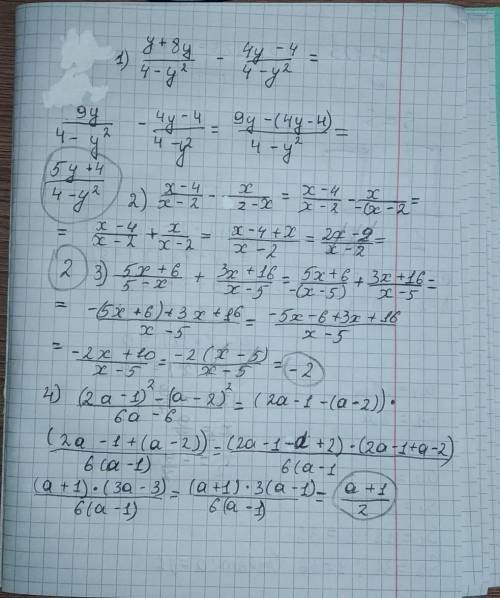 1) (y+8y)/(4-y²) - (4y-4)/(4-y²) =
9y/(4-y²) - (4y-4)/(4-y²) = (9y-(4y-4))/(4-y²) =
(5y+4)/(4-y²)
2) (x-4)/(x-2) - x/(2-x) = (x-4)/(x-2) - x/(-(x-2 =
= (x-4)/(x-2) + x/(x-2) = (x-4+x)/(x-2) = (2x-9)/(x-2) =
2
3) (5x+6)/(5-x) + (3x+16)/(x-5) = (5x+6)/(-(x-5)) + (3x+16)/(x-5) =
= (-(5x+6)+3x+16)/(x-5) = (-5x-6+3x+16)/(x-5)
= (-2x+10)/(x-5) = (-2(x-5))/(x-5) = -2
4) ((2a-1)²-(a-2)²)/(6a-6) = (2a-1-(a-2))·
(2a-1+(a-2))/(6(a-1)) = ((2a-1-a+2)·(2a-1+a-2))/(6(a-1
((a+1)·(3a-3))/(6(a-1)) = ((a+1)·3(a-1))/(6(a-1)) = (a+1)/2